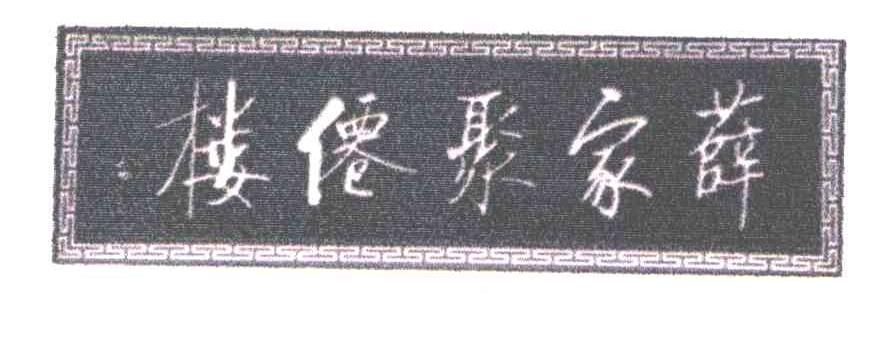 薛家聚僊楼